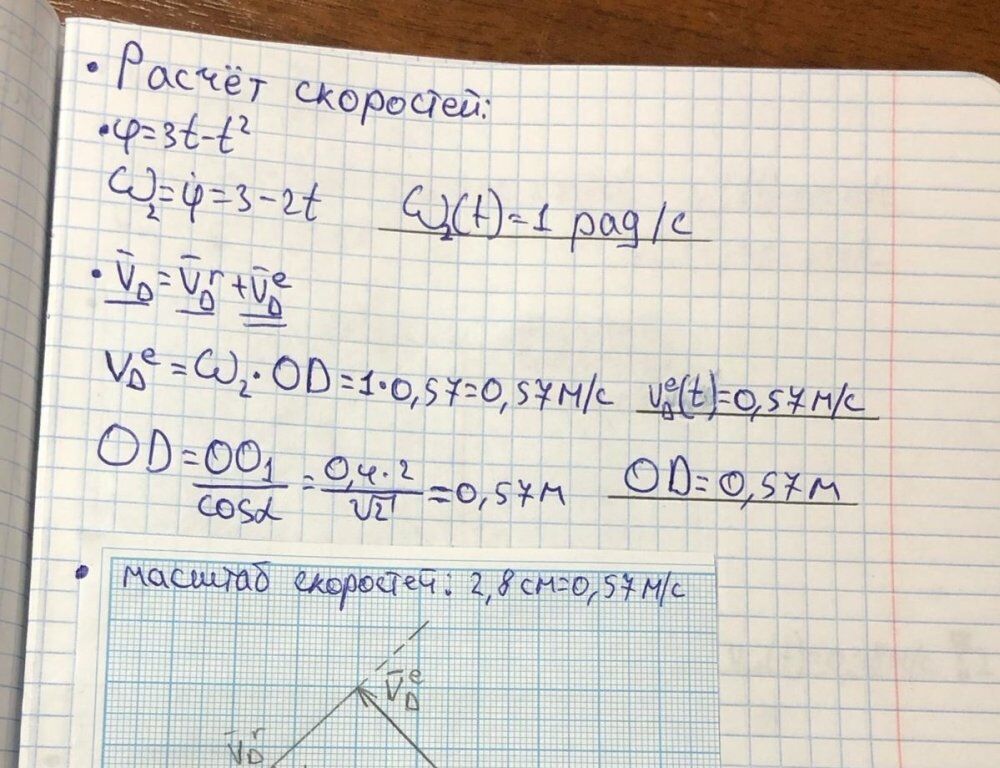 • Расчёт скоростей:
• φ=3t-t²
ω₂=φ̇=3-2t ω₂(t)=1 рад/с
• V̄_D=V̄_D^r+V̄_D^e
V_D^e=ω₂·OD=1·0,57=0,57м/с V_D^e(t)=0,57м/с
OD=OO₁/cosα=0,4·2/√2=0,57м OD=0,57м
• масштаб скоростей: 2,8см=0,57м/с
V̄_D^e
V̄_D^r